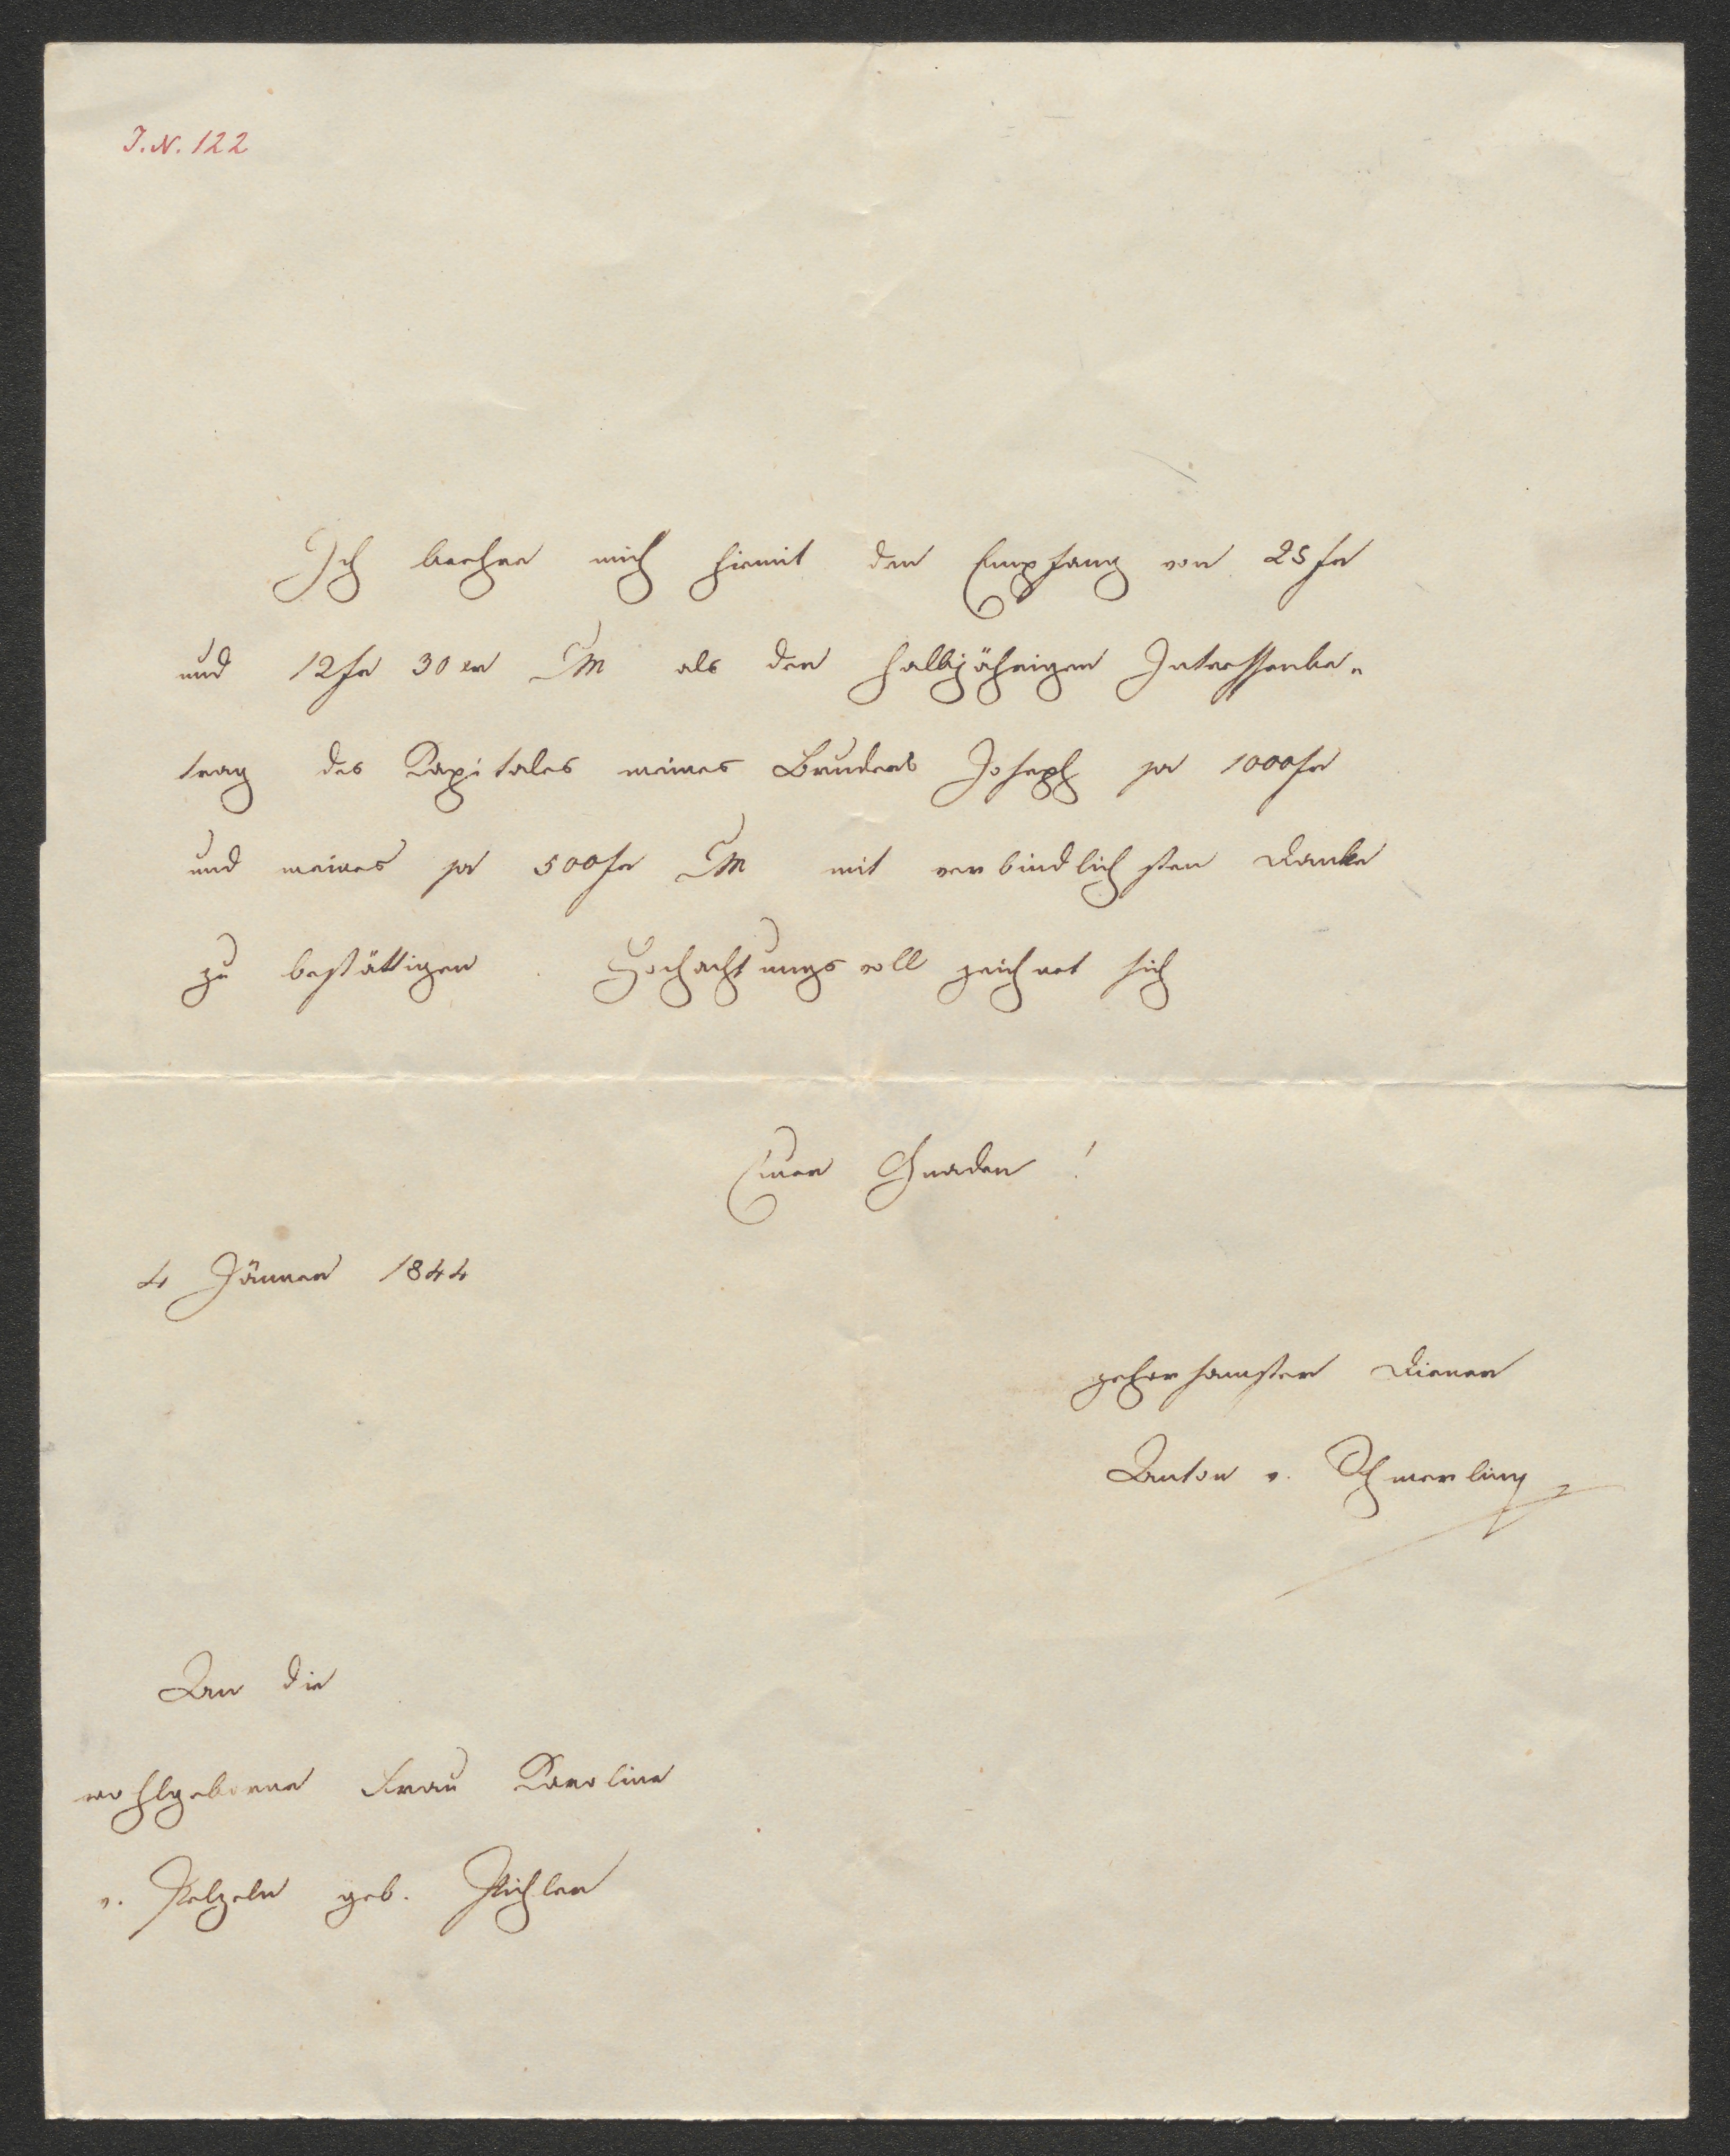 I.N. 122
Ich beehre mich hiemit den Empfang von 25 fr
und 12 fr 30 xr CM als den halbjährigen Intressenbe-
trag des Kapitales meines Bruders Joseph pr 1000 fr
und meines pr 500 fr CM mit verbindlichsten Danke
zu bestättigen. Hochachtungsvoll zeichnet sich
Euer Gnaden!
4 Jänner 1844
gehorsamster Diener
Anton v. Schmerling
An die
wohlgeborne Frau Karoline
v. Pelzeln geb. Pichler